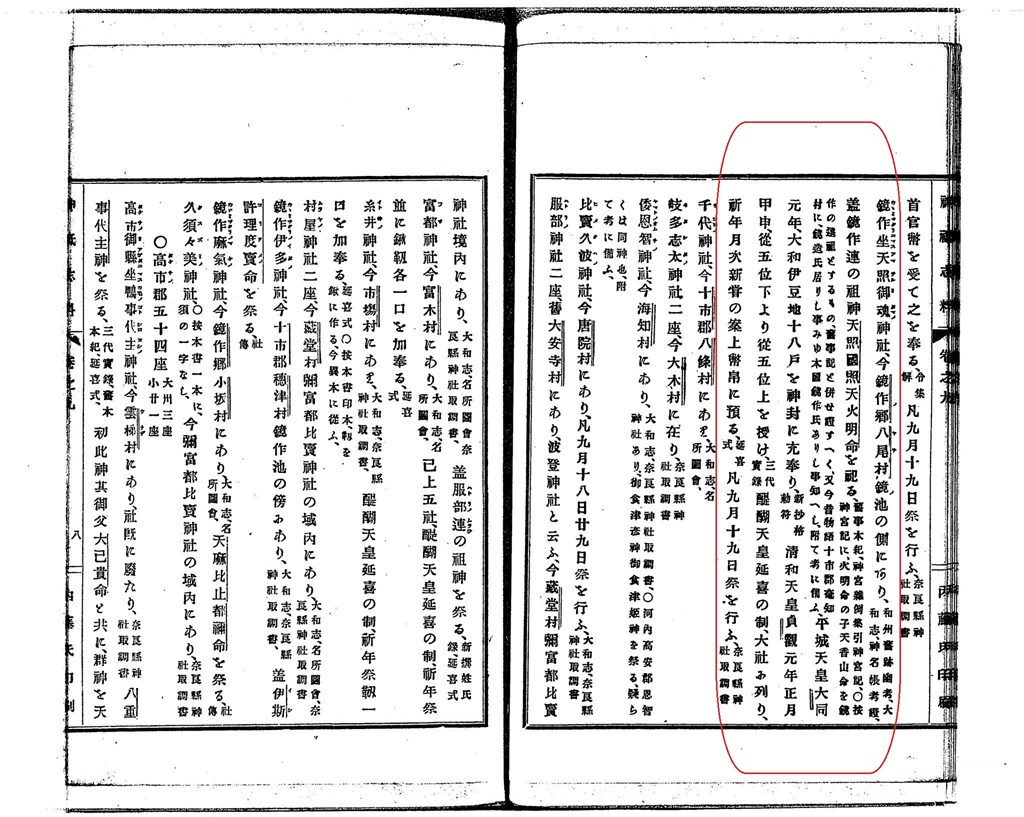 神祇志料 卷之九
首官幣を受て之を奉る、令集解 凡九月十九日祭を行ふ、奈良縣神社取調書
鏡作坐天照御魂神社、今鏡作郷八尾村鏡池の側にあり、和州舊跡幽考、大和志、神名帳考證、
蓋鏡作連の祖神天照國照天火明命を祀る、舊事本紀、神宮雜例集引神宮記、〇按神宮記に、火明命の子天香山命を鏡
作の遠祖とするもの、舊事記と併せ證すへく、又今昔物語十市郡菴知
村に鏡造氏居りし事みゆ、本國鏡作氏ありし事知へし、附て考に備ふ、平城天皇大同
元年、大和伊豆地十八戸を神封に充奉り、新抄格勅符 清和天皇貞觀元年正月
甲申、從五位下より從五位上を授け、三代實錄 醍醐天皇延喜の制、大社に列り、
祈年月次新甞の案上幣帛に預る、延喜式 凡九月十九日祭を行ふ、奈良縣神社取調書
千代神社、今十市郡八條村にあり、大和志、名所圖會、
岐多志太神社二座、今大木村に在り、奈良縣神社取調書
倭恩智神社、今海知村にあり、大和志、奈良縣神社取調書、〇河內高安郡恩智神社あり、御食津彦神御食津姬神を祭る、疑ら
くは同神也、附て考に備ふ、
比賣久波神社、今唐院村にあり、凡九月十八日廿九日祭を行ふ、大和志、奈良縣神社取調書、
服部神社二座、舊大安寺村にあり、波登神社と云ふ、今藏堂村彌富都比賣
神社境內にあり、大和志、名所圖會、奈良縣神社取調書、 蓋服部連の祖神を祭る、新撰姓氏錄、延喜式
富都神社、今富木村にあり、大和志、名所圖會、 已上五社、醍醐天皇延喜の制、祈年祭
並に鍬靱各一口を加奉る、延喜式
糸井神社、今市塲村にあり、大和志、奈良縣神社取調書、 醍醐天皇延喜の制祈年祭靱一
口を加奉る、延喜式〇按本書印本、靱を鍬に作る、今異本に從ふ、
村屋神社二座、今藏堂村彌富都比賣神社の域內にあり、大和志、名所圖會、奈良縣神社取調書、
鏡作伊多神社、今十市郡穗津村鏡作池の傍にあり、大和志、奈良縣神社取調書、 蓋伊斯
許理度賣命を祭る、社傳
鏡作麻氣神社、今鏡作郷小坂村にあり、大和志、名所圖會、 天麻比止都禰命を祭る、社傳
久須々美神社、〇按本書一本に、須の一字なし、 今彌富都比賣神社の域內にあり、奈良縣神社取調書
〇高市郡五十四座 大卅三座 小廿一座
高市御縣坐鴨事代主神社、今雲梯村にあり、社旣に廢たり、奈良縣神社取調書 八重
事代主神を祭る、三代實錄、舊事本紀、延喜式、 初此神其御父大己貴命と共に、群神を天
神祇志料 卷之九
八